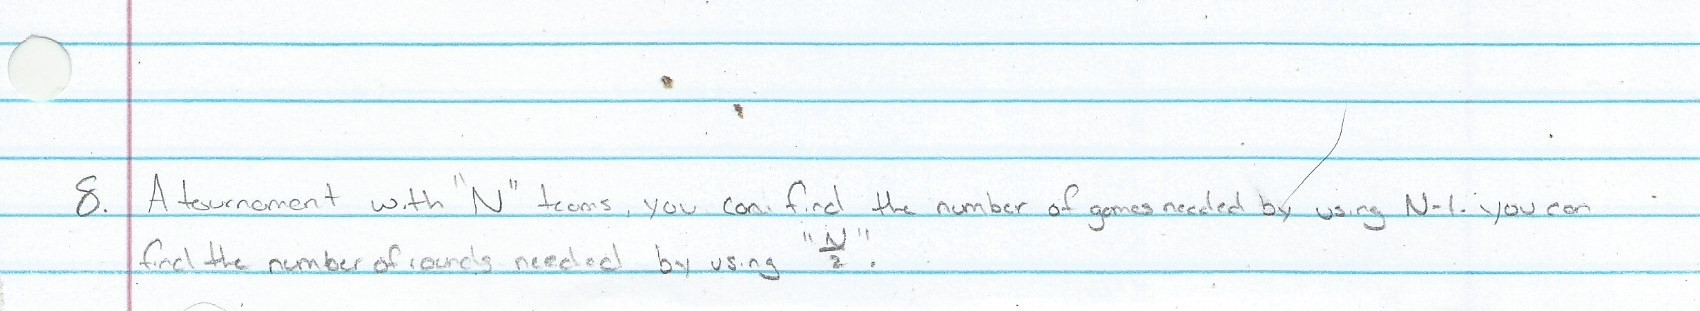 8. A tournament with "N" teams, you can find the number of games needed by using N-1. you can
find the number of rounds needed by using "N/2".